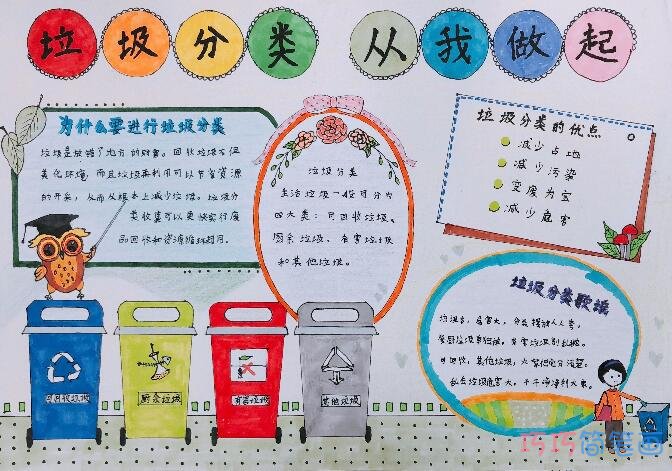 垃圾分类 从我做起
为什么要进行垃圾分类
垃圾是放错了地方的财富。回收垃圾不但
美化环境,而且垃圾再利用可以节省资源
的开采,从而从根本上减少垃圾。垃圾分
类收集可以更快实行废
品回收和资源循环利用。
垃圾分类
生活垃圾一般可分为
四大类:可回收垃圾、
厨余垃圾、有害垃圾
和其他垃圾。
垃圾分类的优点
减少占地
减少污染
变废为宝
减少危害
垃圾分类歌谣
垃圾多,危害大,分类摆放人人夸,
餐厨垃圾单独放,有害垃圾别乱抛。
可回收,其他垃圾,大家
乱丢垃圾危害大,干干净净利大家。
可回收垃圾
厨余垃圾
有害垃圾
其他垃圾
巧巧简笔画